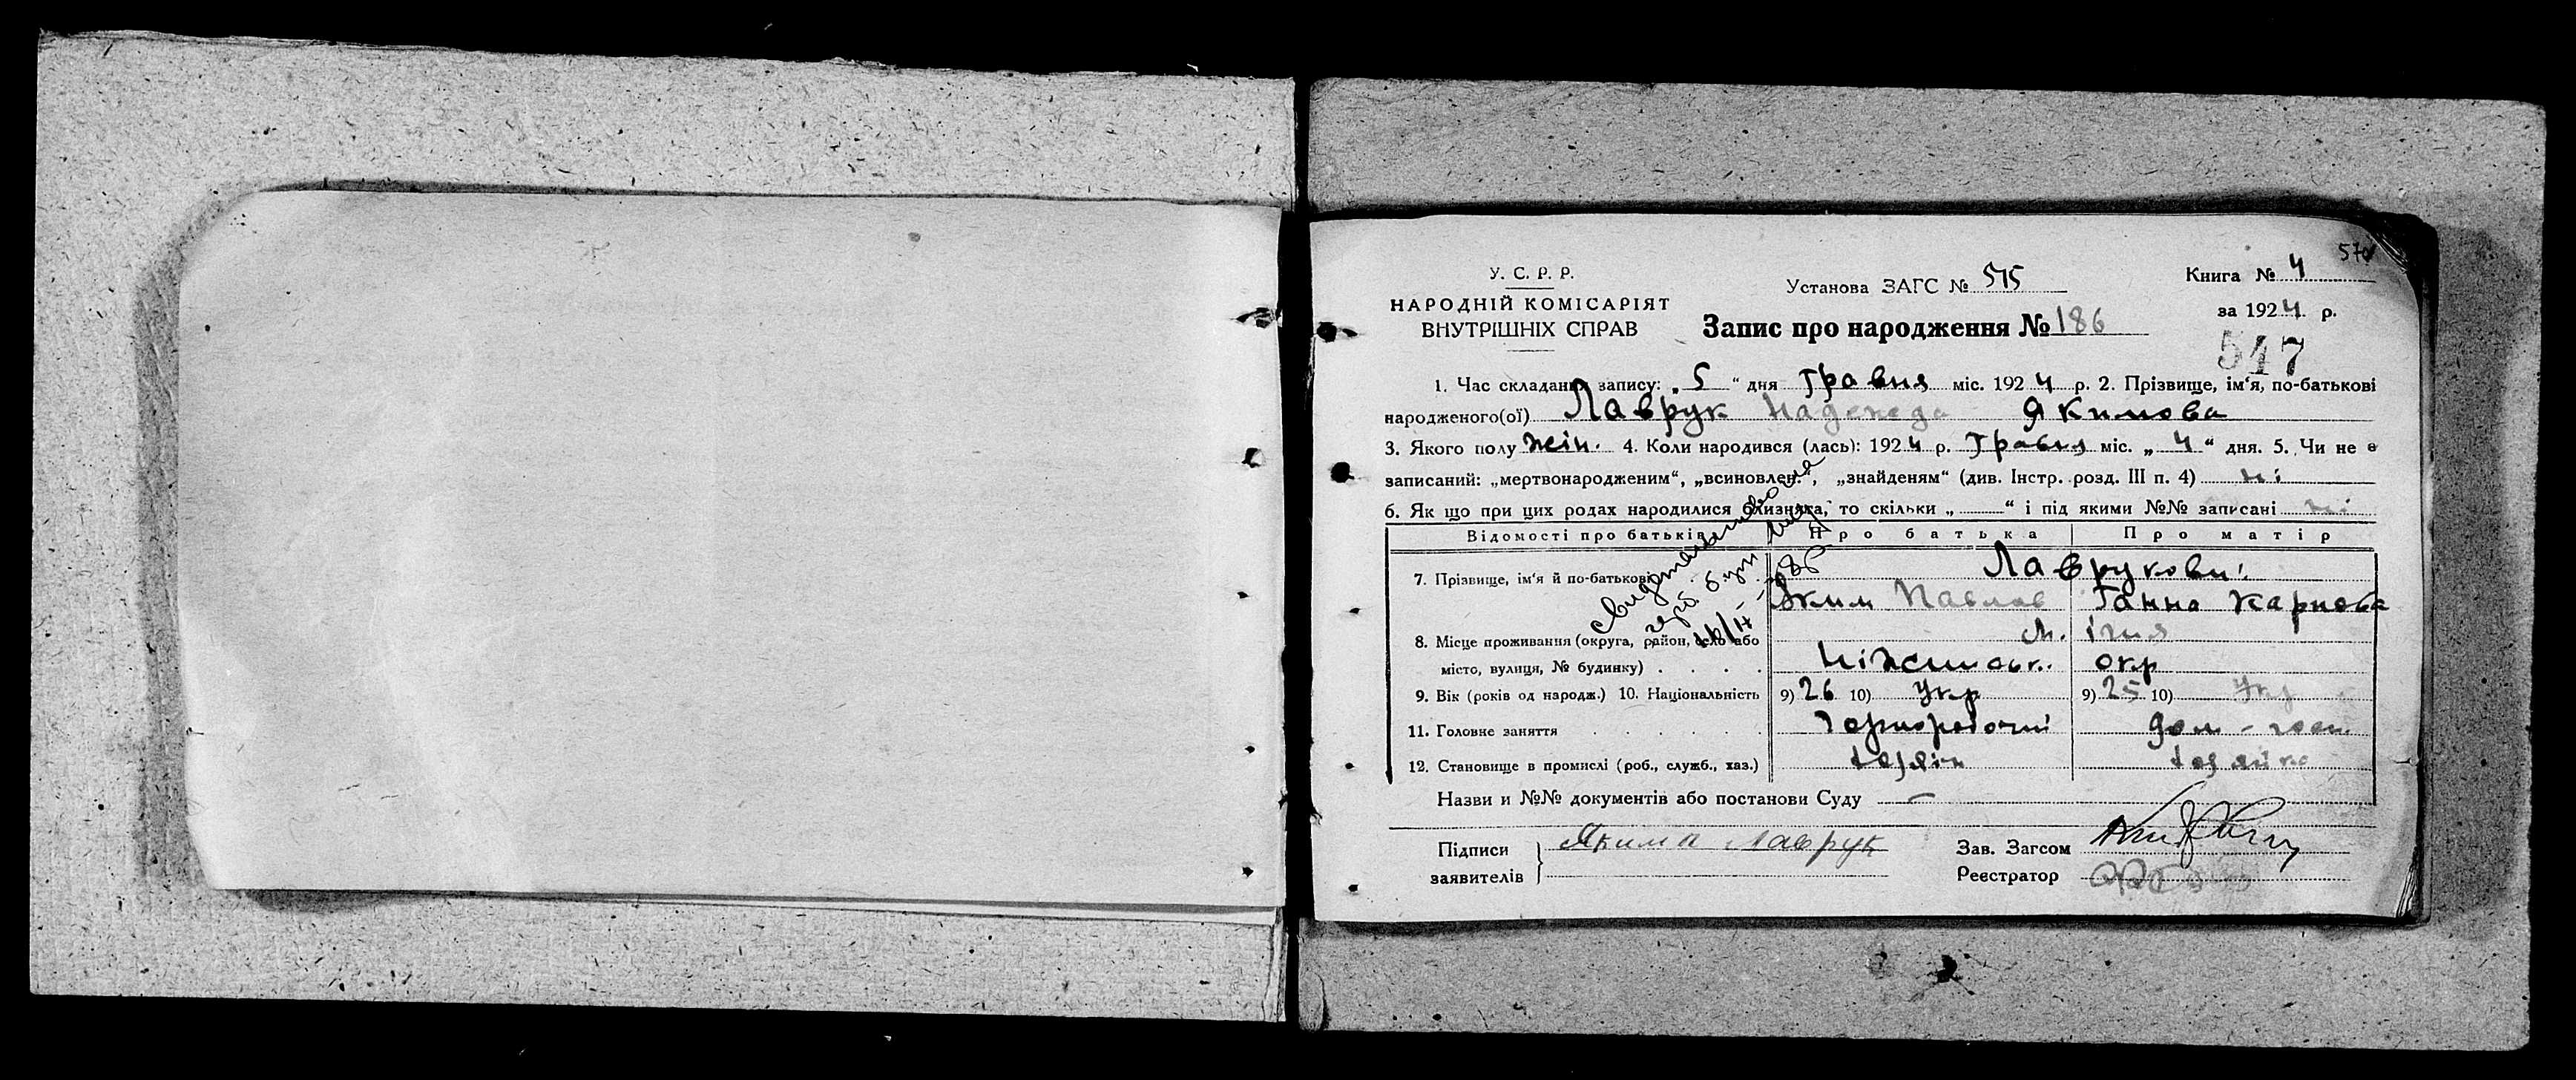 570
У. С. Р. Р.
НАРОДНІЙ КОМІСАРІЯТ
ВНУТРІШНІХ СПРАВ
Установа ЗАГС № 515
Книга № 4
за 1924 р.
Запис про народження № 186
547
1. Час складання запису: „5“ дня травня міс. 1924 р. 2. Прізвище, ім‘я, по-батькові
народженого(ої) Лаврук Надежда Якимова
3. Якого полу жін. 4. Коли народився (лась): 1924 р. травня міс. „4“ дня. 5. Чи не є
записаний: „мертвонародженим“, „всиновлен.“, „знайденям“ (див. Інстр. розд. III п. 4) ні
6. Як що при цих родах народилися близнята, то скільки „ “ і під якими №№ записані ні
Відомості про батьків Про батька Про матір
7. Прізвище, ім‘я й по-батькові Лаврукови
Яким Павлов Ганна Карпова
8. Місце проживання (округа, район, село або м.
місто, вулиця, № будинку) окр
9. Вік (років од народж.) 10. Національність 9) 26 10) Укр 9) 25 10) Укр
11. Головне заняття Чернорабочий дом-госп.
12. Становище в промислі (роб., служб., хаз.)
Назви и №№ документів або постанови Суду —
Підписи заявителів Якима Лаврук
Зав. Загсом
Реєстратор